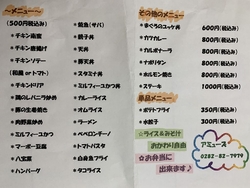 ～メニュー～
(500円(税込み))
＊チキン南蛮
＊チキン唐揚げ
＊チキンソテー
(和風 or トマト)
＊チキンドリア
＊鶏のレバニラ炒め
＊豚の生姜焼き
＊肉野菜炒め
＊ミルフィーユカツ
＊マーボー豆腐
＊八宝菜
＊ハンバーグ
＊焼魚(サバ)
＊親子丼
＊天丼
＊カツ丼
＊豚丼
＊スタミナ丼
＊ミルフィーユカツ丼
＊カレーライス
＊オムライス
＊ラーメン
＊ペペロンチーノ
＊トマトパスタ
＊白身魚フライ
＊タコライス
その他のメニュー
＊まぐろのユッケ丼 800円(税込み)
＊カツカレー 800円(税込み)
＊カルボナーラ 800円(税込み)
＊ナポリタン 800円(税込み)
＊ホルモン焼き 800円(税込み)
＊ステーキ 1000円(税込み)
単品メニュー
＊ポテトフライ 350円(税込み)
＊水餃子 300円(税込み)
☆ライス&みそ汁
おかわり自由
☆お弁当に
出来ます♪
アミューズ
0282-82-7979